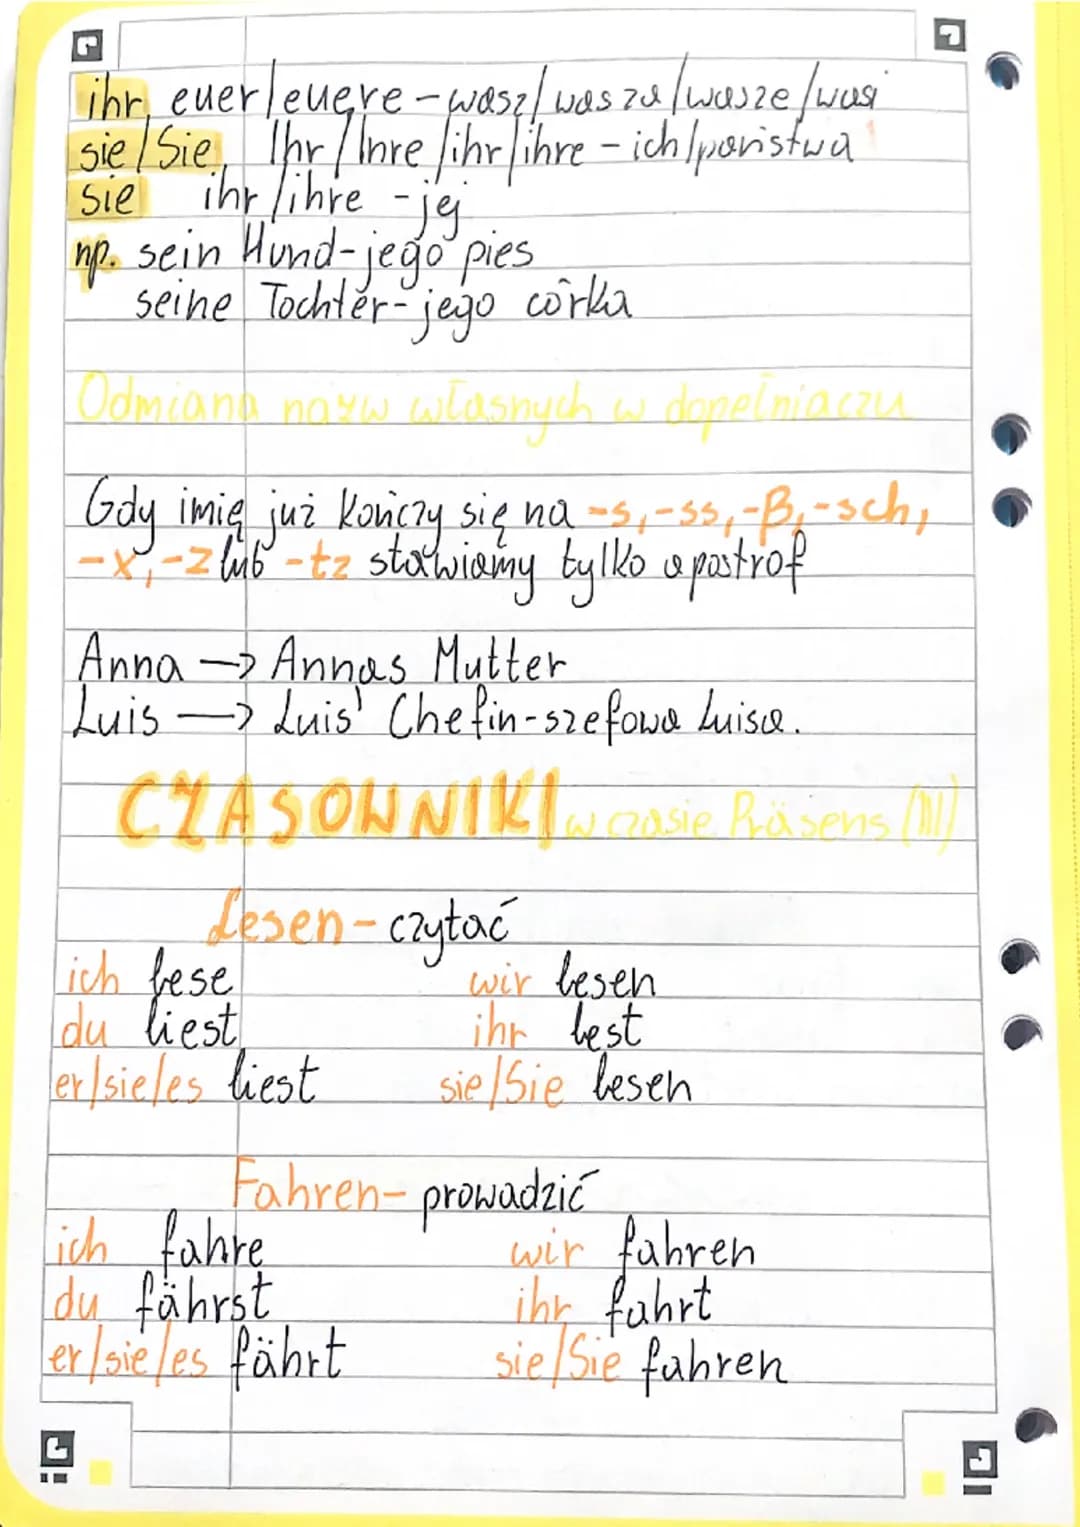 ihr, euer/euere - wasz/wasza/wasze/wasi
sie/Sie, Ihr/Ihre/ihr/ihre - ich/państwa
sie ihr/ihre - jej
np. sein Hund - jego pies
seine Tochter - jego córka
Odmiana nazw własnych w dopełniaczu
Gdy imię już kończy się na -s, -ss, -ß, -sch,
-x, -z lub -tz stawiamy tylko apostrof
Anna → Annas Mutter
Luis → Luis' Chefin - szefowa Luisa.
CZASOWNIKI w czasie Präsens (III)
Lesen - czytać
ich lese wir lesen
du liest ihr lest
er/sie/es liest sie/Sie lesen
Fahren - prowadzić
ich fahre wir fahren
du fährst ihr fahrt
er/sie/es fährt sie/Sie fahren